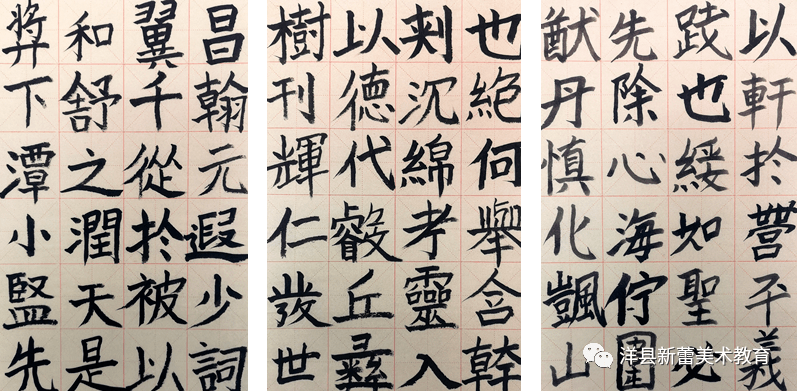 昌翰元遐少詞
翼千從於被以
和舒之潤天是
下潭小監先
也絕何舉含幹
沉綿孝靈入
以德代叡丘彝
樹刊輝仁發世
以軒於營平義
跋也綏如聖
先除心海佇
猷丹慎化颽山
洋县新蕾美术教育